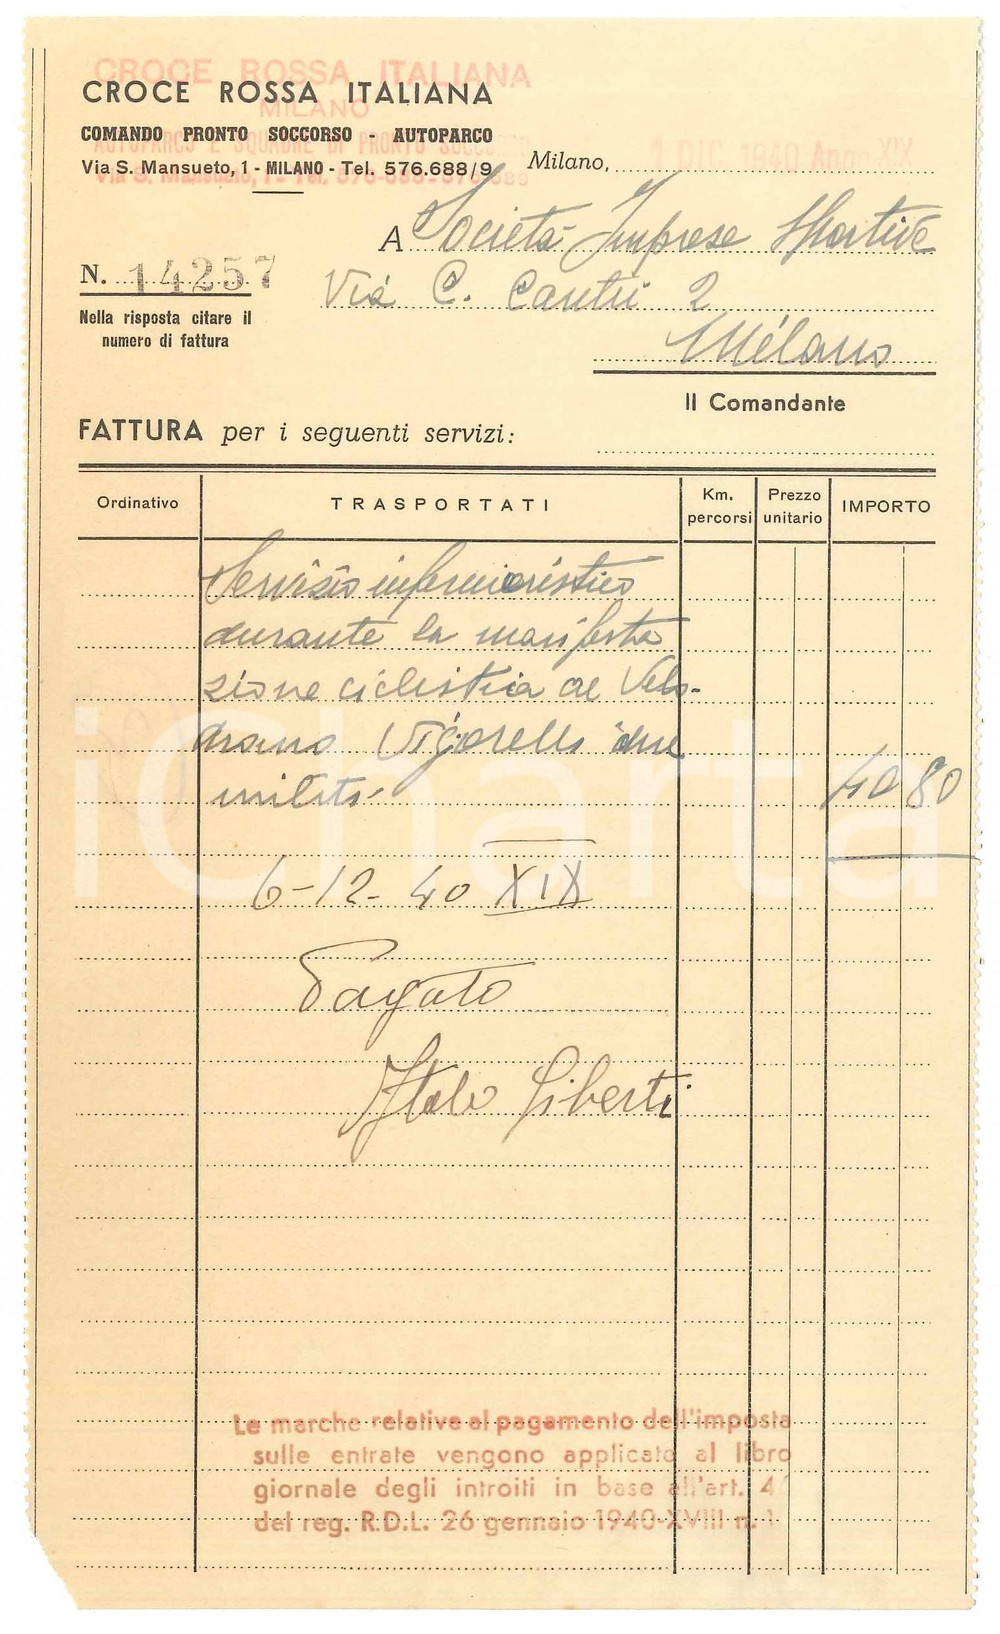 CROCE ROSSA ITALIANA
MILANO
AUTOPARCO E SQUADRE DI PRONTO SOCCORSO
Via S. Mansueto, 1 - Tel. 576-688 - 576-689
CROCE ROSSA ITALIANA
COMANDO PRONTO SOCCORSO - AUTOPARCO
Via S. Mansueto, 1 - MILANO - Tel. 576.688/9
Milano, 1 DIC. 1940 Anno XIX
A Società Imprese Sportive
Via C. Cantù 2
Milano
N. 14257
Nella risposta citare il
numero di fattura
Il Comandante
FATTURA per i seguenti servizi:
Ordinativo
TRASPORTATI
Km.
percorsi
Prezzo
unitario
IMPORTO
Servizio infermieristico
durante la manifesta
zione ciclistica al Velo-
dromo Vigorelli due
militi-
40 80
6-12-40 XIX
Pagato
Italo Liberti
iCharta
Le marche relative al pagamento dell'imposta
sulle entrate vengono applicate al libro
giornale degli introiti in base all'art. 4
del reg. R.D.L. 26 gennaio 1940-XVIII n. 1